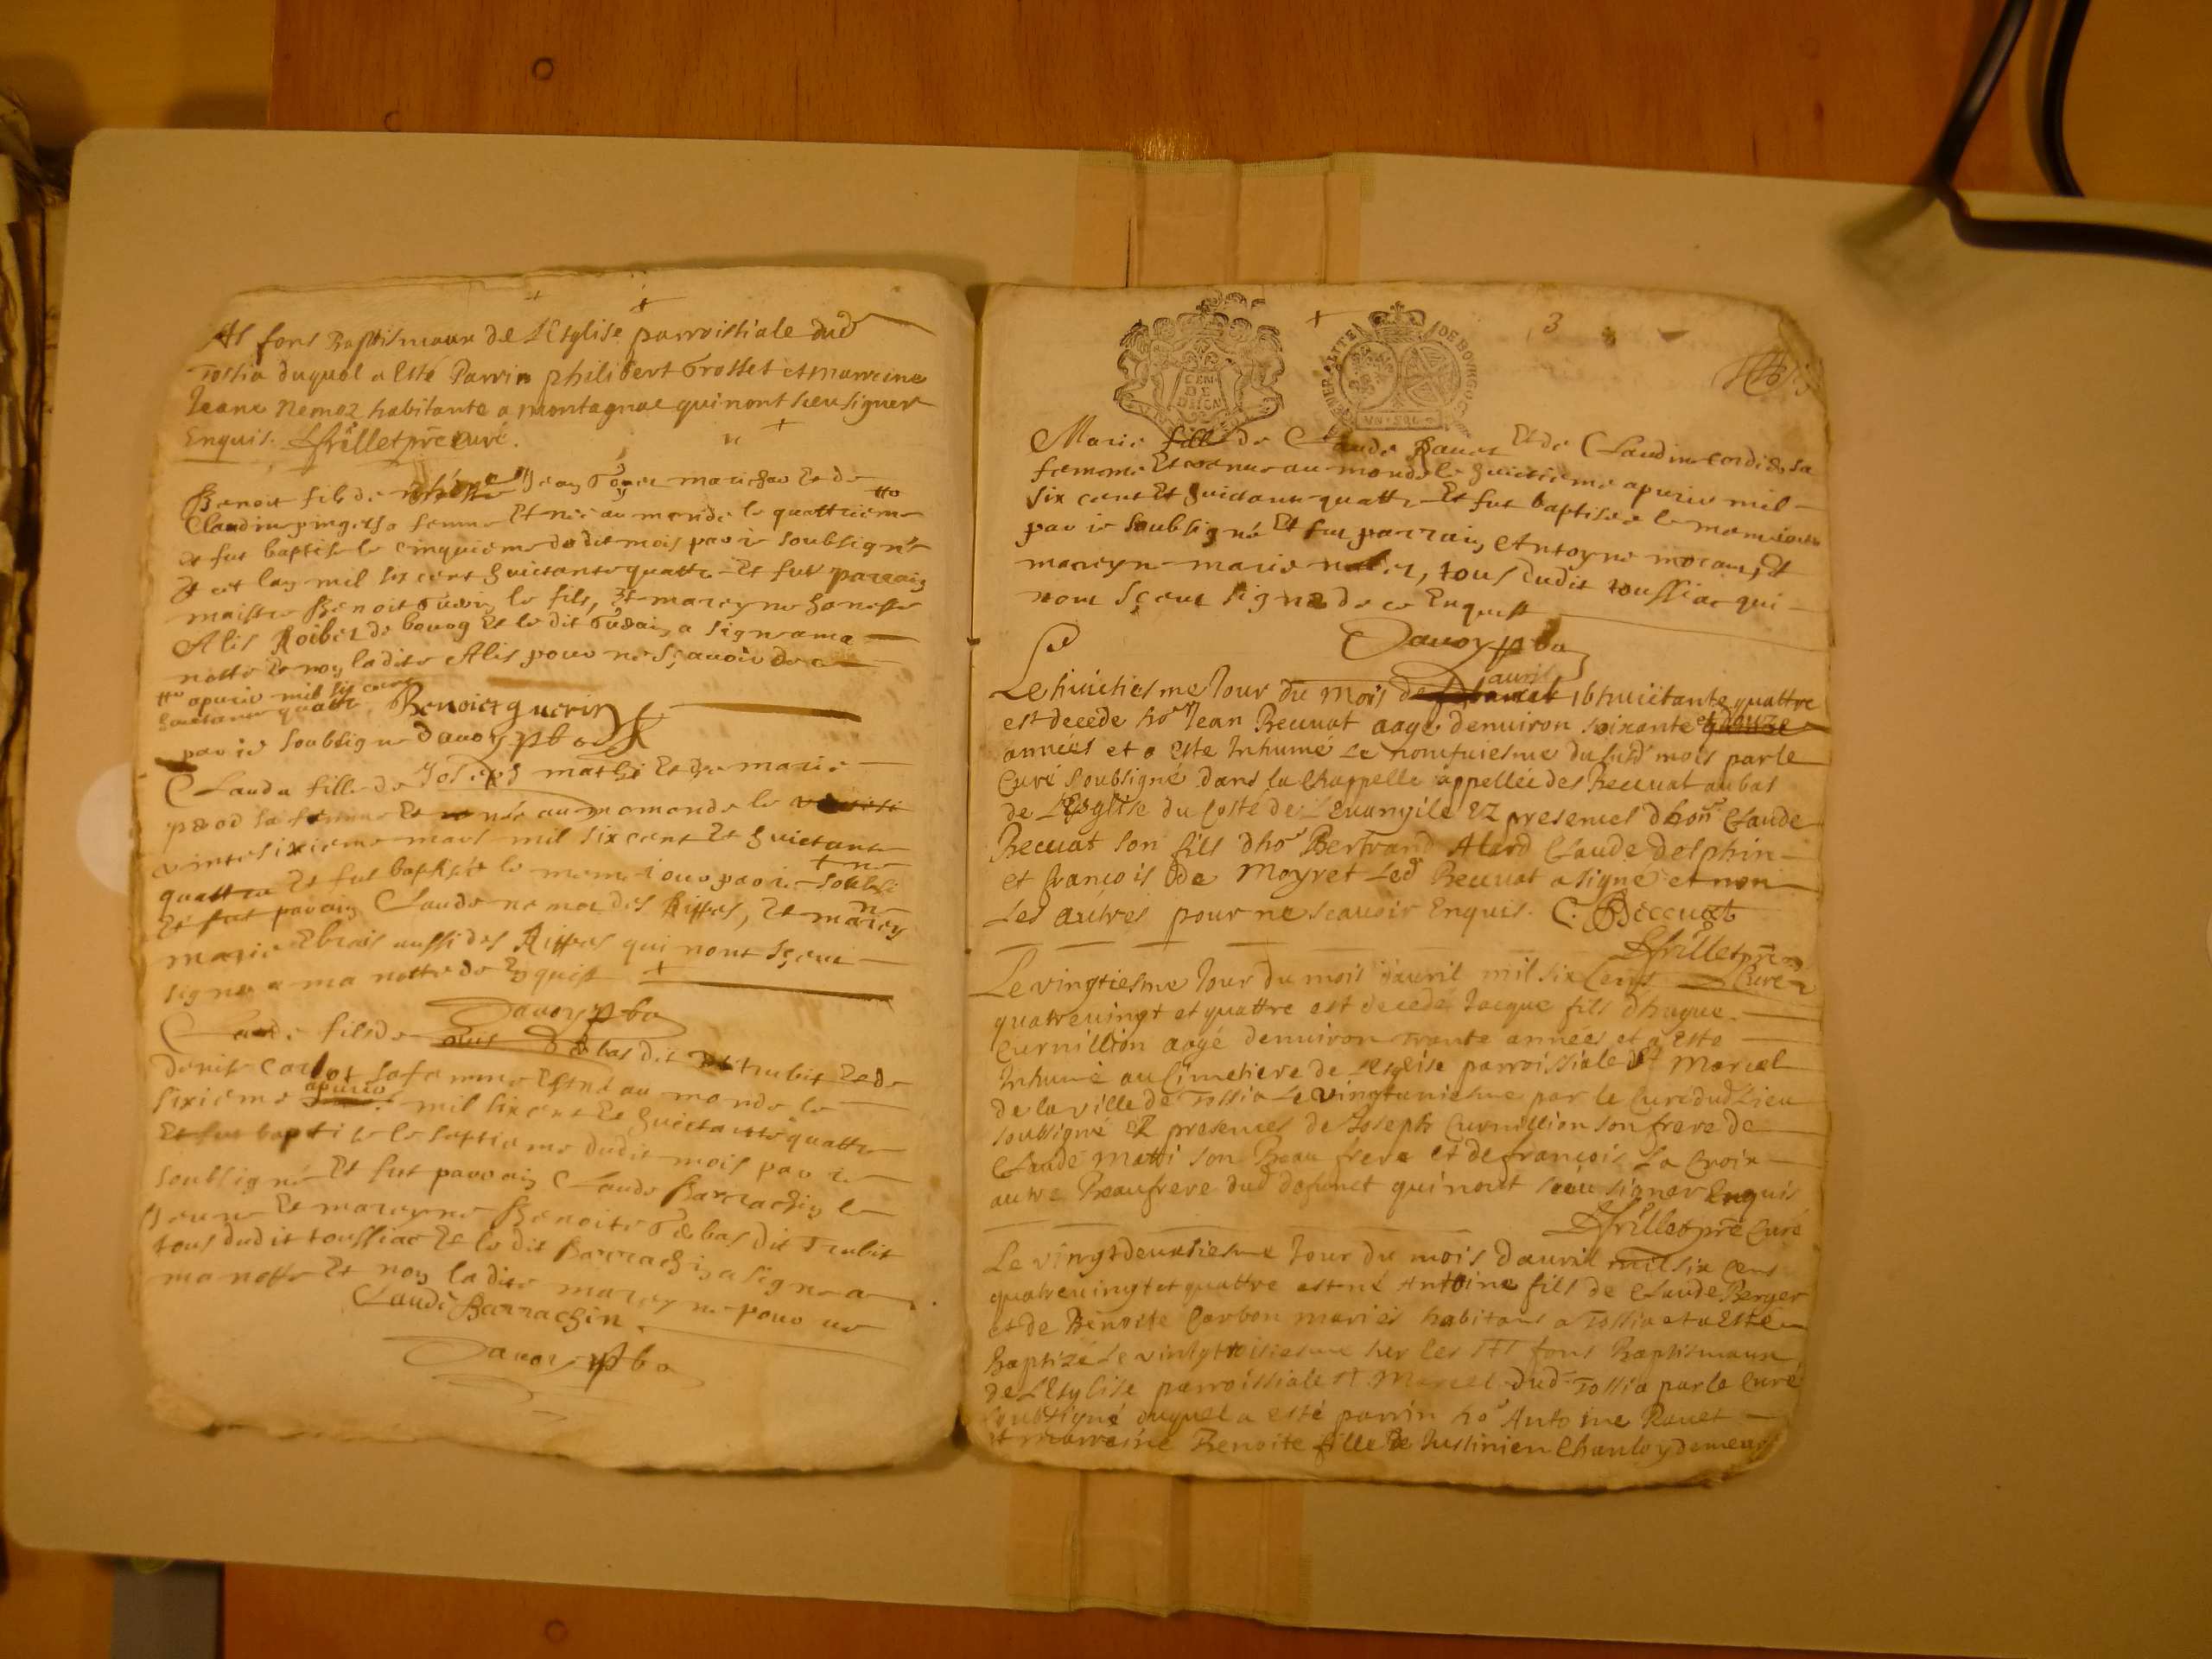 fons Baptismaux de L'Esglise parroissiale dud
Tossia duquel a Esté Parrin philibert Grosset et marreine
Jeane Nemoz habitante a montagnac qui nont sceu signer
Enquis. frillet pre curé.
Benoit fils de Jean marichao Et de
Claudine sa femme Et née au monde le quattrieme
et fut baptise le cinquieme dudit mois par ie soubsigné
Et cet lan mil six cent huictante quattre Et fut parrain
maistre Benoit le fils, Et mareyne honeste
Alis Roibet de bourg Et le dit a signe a ma
notte Et non ladite Alis pour ne sçavoir de ce
apuric mil six cent
huictante quattre Benoict guerin
par ie soubsigne Davoy pbr
Clauda fille de Joseph mathi Et de marie
sa femme Et née au monde le
vintesixieme mars mil six cent Et huictante
quattre Et fut baptisée le meme iour par ie soubsi
Et fut parrain Claude nemoz des Riffes, Et marey
marie aussi des Riffes qui nont sçeu
signer a ma notte de Enquist
Davoy pbr
Claude fils de debas dit trubit Et de
denise Carlot sa femme Est né au monde le
sixieme apuric mil six cent Et huictante quattre
Et fut baptise le septieme dudit mois par ie
soubsigné Et fut parrain Claude Barrachin le
Jeune Et mareyne Benoite debas dit Trubit
tous dudit toussiac Et le dit Barrachin a signe a
ma notte Et non ladite mareyne pour ne
Claude Barrachin
Davoy pbr
GENERALITE DE BOURGOG
GEN
DE
UN SOL
3
Marie fille de Claude Et de Claudine sa
femme Est venue au monde le huictieme apuric mil
six cent Et huictante quattre Et fut baptisée le meme iour
par ie soubsigné Et fut parrain Antoyne Et
mareyne marie tous dudit toussiac qui
nont sçeu signe de ce Enquist
Davoy pbr
Le
auril
Le huictiesme Jour du mois de 16 huictante quattre
est decede ho Jean Becuat aagé denuiron soixante et
années et a Esté Inhumé le neufuiesme dususd mois par le
Curé soubsigné dans la Chappelle appellée des Becuat au bas
de L'Esglise du Costé de L'Euangile Ez presences d'hon Claude
Becuat son fils d'ho Bertrand Alard Claude Delphin
et François Ode Moyret led Becuat a signé et non
Les autres pour ne scauoir Enquis. C. Béccuat
frillet pre
Curé
Le vingtiesme Jour du mois dauril mil six Cens
quatreuingt et quattre est decede Jacque fils d'hugue
Curnillion aagé denuiron trante années et a Esté
Inhumé au Cimetiere de L'Esglise parroissiale St Marcel
de la ville de Tossia Le Vingtuniesme par le Curé dud Lieu
soubsigné Ez presences de Joseph Curnillion son frere de
Claude Matti son Beau frere et de françois La Croix
autre Beaufrere dud defunct qui nont sceu signer Enquis
frillet pre Curé
Le vingtdeuxiesme Jour du mois dauril mil six cens
quatreuingt et quattre est né Antoine fils de Claude Berger
et de Benoite Carbon mariés habitans a Tossia et a Esté
Baptizé Le vintgtroisiesme sur les Sts fons Baptismaux
de L'Esglise parroissiale St Marcel dud Tossia par le Curé
soubsigné duquel a esté parrin ho Antoine Rauet
et marreine Benoite fille de Justinien Chanley